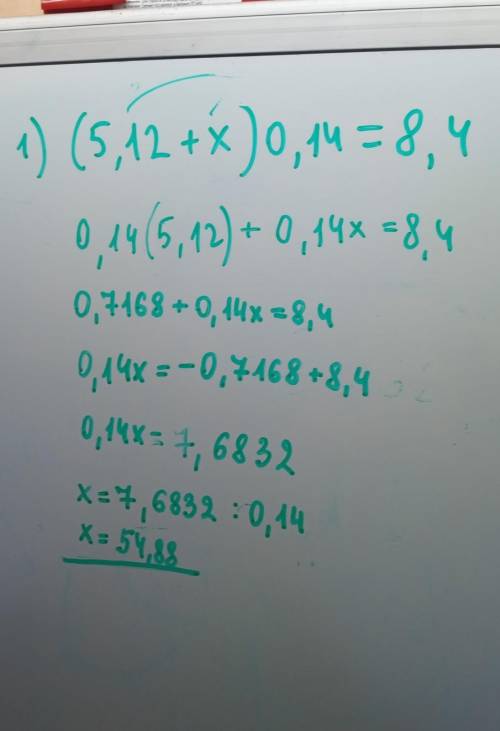 1) (5,12 + x) 0,14 = 8,4
0,14(5,12) + 0,14x = 8,4
0,7168 + 0,14x = 8,4
0,14x = -0,7168 + 8,4
0,14x = 7,6832
x = 7,6832 : 0,14
x = 54,88